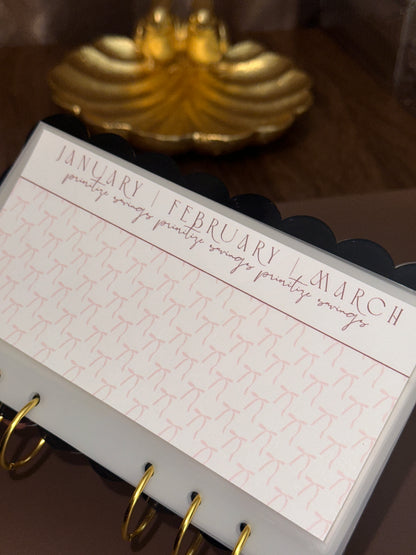 JANUARY | FEBRUARY | MARCH
prioritize savings prioritize savings prioritize savings